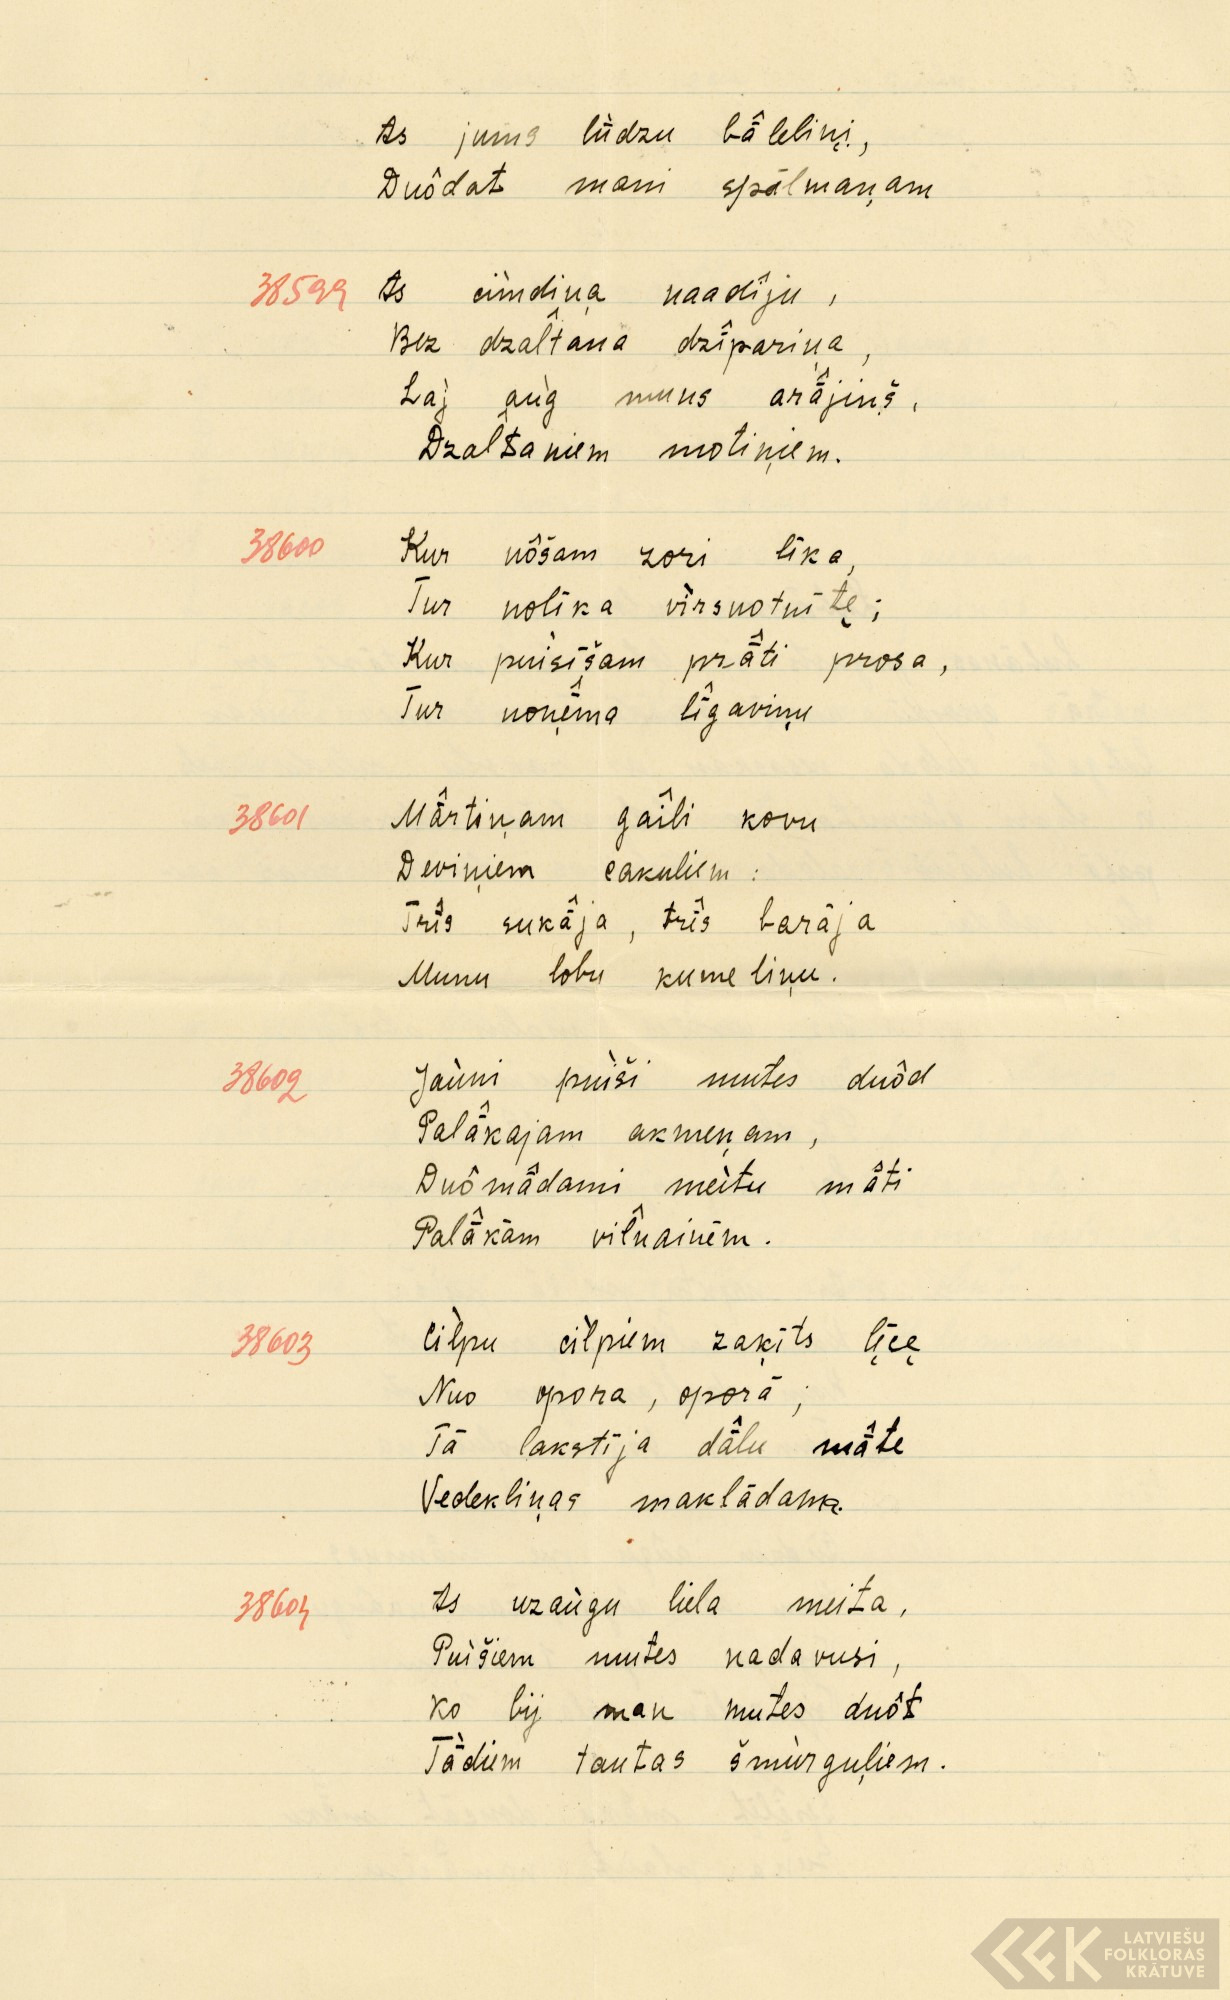 As jums lūdzu bā̂leliņi,
Duôdat mani spālmaņam
38599 As cimdiņa naadîju,
Bez dzal̂tana dzîpariņa,
Laj aùg muns arā̂jiņš,
Dzaltaniem motiņiem.
38600 Kur nôšam zori līka,
Tur nolīka vìrsuotnītę;
Kur puìsīšam prā̂ti prosa,
Tur noņē̂ma lîgaviņu
38601 Mā̂rtiņam gaîli kovu
Deviņiem cakuliem:
Trîs sukā̂ja, trîs barāja
Munu lobu kumeliņu.
38602 Jaùni puìši mutes duôd
Palā̂kajam akmeņam,
Duômā̂dami meìtu mā̂ti
Palā̂kām vil̂nainēm.
38603 Cìlpu cìlpiem zaķīts ļīcę
Nuo opora, oporā;
Tā lakstīja dā̂lu mā̂te
Vedekliņas maklādama.
38604 As uzaùgu liela meita,
Puìšiem mutes nadavusi,
Ko bij man mutes duôt
Tā̀diem tautas šmùrguļiem.
LATVIEŠU
FOLKLORAS
KRĀTUVE